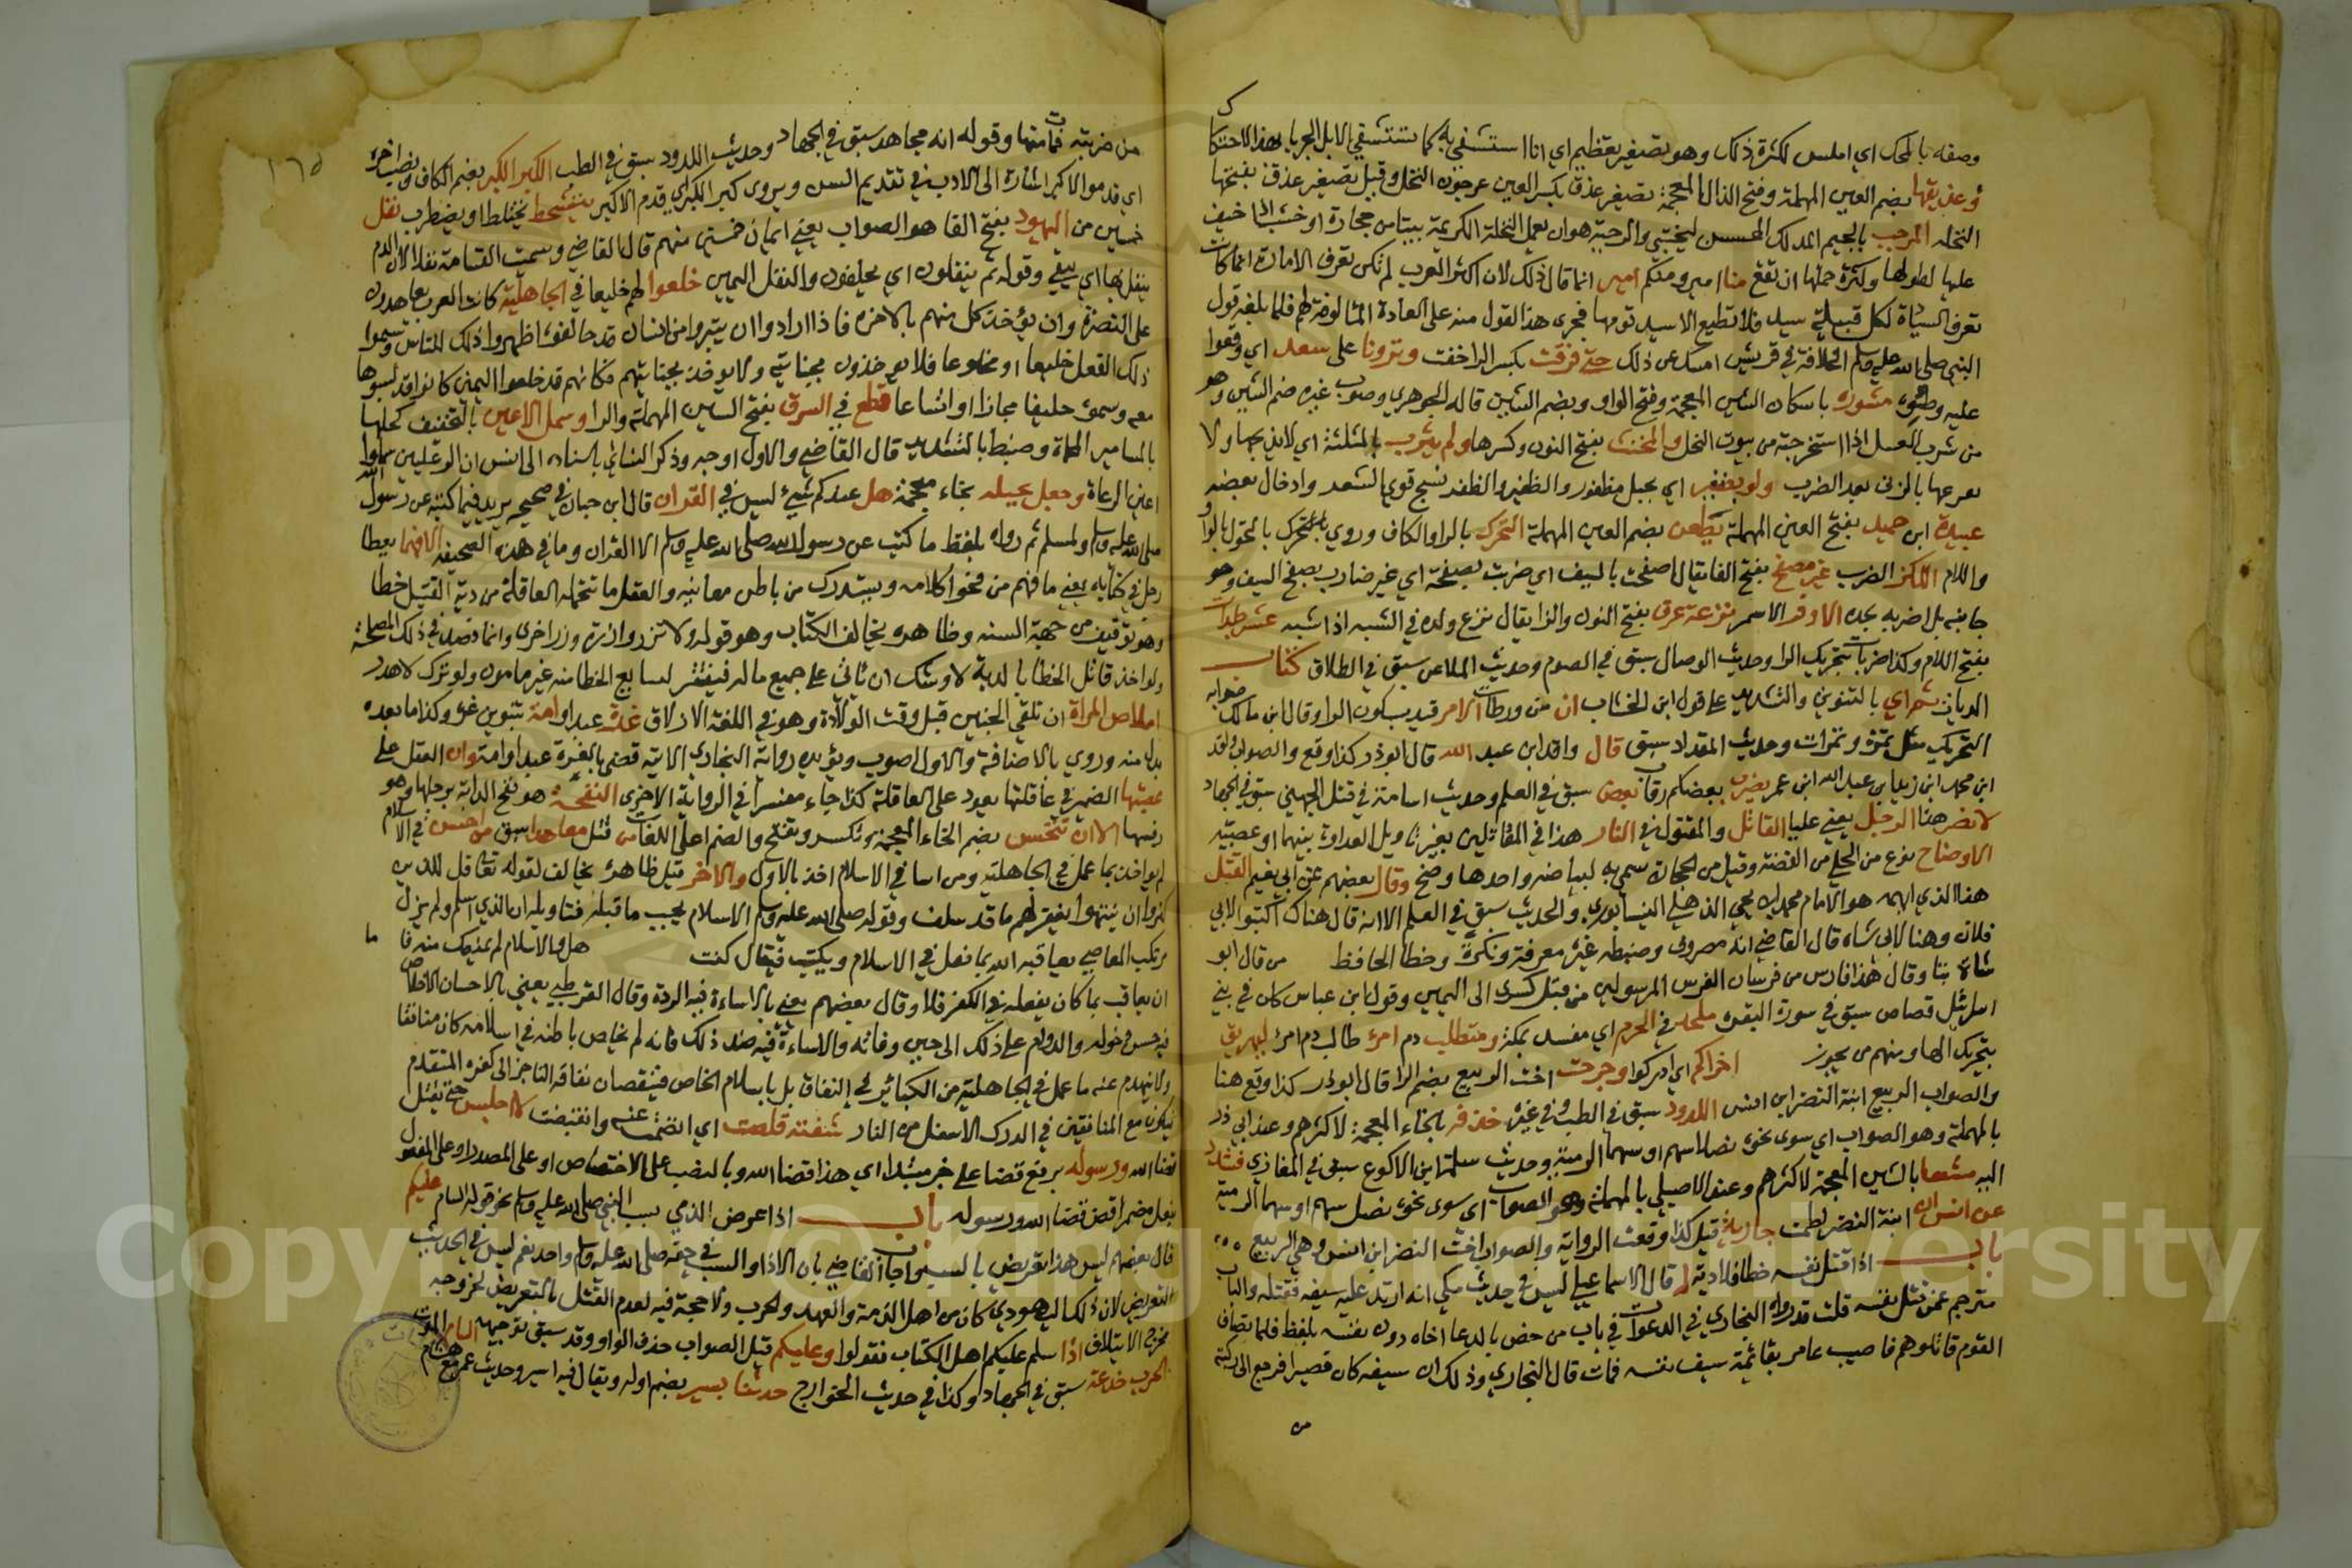 وصفه بالمحك اي املس لكثرة ذلك وهو تصغير تعظيم اي انا استشفي به كما تستشفي الابل الجربا بهذا الاحتكاك
وعذيقها بضم العين المهملة وفتح الذال المعجمة تصغير عذق بكسر العين عرجون النخل وقيل تصغير عذق بفتحها
النخله المرجب بالجيم المدلك والرجبة هو ان تعمل النخلة الكريمة ببيتا من حجارة او خشب اذا خيف
عليها لطولها وكثرة حملها ان تقع منا امير ومنكم امير انما قال ذلك لان اكثر العرب لم تكن تعرف الامارة انما كانت
تعرف السيادة لكل قبيلة سيد فلا تطيع الا سيد قومها فجرى هذا القول منه على العادة المالوفة لهم فلما بلغه قول
النبي صلى الله عليه وسلم الخلافة في قريش امسك عن ذلك حتى فرقت بكسر الرا خفت ونزونا على سعد اي وقعوا
عليه مشورة باسكان الشين المعجمة وفتح الواو وبضم الشين قاله الجوهري وصوب غيره ضم الشين وهو
من شرب العسل اذا استخرجته من بيوت النحل والمخنث بفتح النون وكسرها ولم يثرب بالمثلثة اي لا يوبخها ولا
يعرعها بالزنى بعد الضرب ولو بضفير اي بحبل مظفور والظفير والظفر نسج قوي الشعر وادخال بعضه
عبيدة ابن حميد بفتح العين المهملة يطعن بضم العين المهملة التحرك بالرا والكاف وروي بالتحول بالواو
واللام اللكز الضرب غير مصفح بفتح الفا يقال اصفحت بالسيف اي ضربت بصفحة اي غير ضارب بصفح السيف وهو
جانبه بل اضربه بحده الاورق الاسمر نزعة عرق بفتح النون والزا يقال نزع ولده في الشبه اذا اشبه عشر جلدات
بفتح اللام وكذا ضربات بتحريك الرا وحديث الوصال سبق في الصوم وحديث الملاعن سبق في الطلاق كتاب
الديات ثم اي بالتنوين والتشديد على قول ابن الخشاب ان من ورطات الامر قيد بسكون الرا وقال ابن مالك صوابه
التحريك مثل تمرة وتمرات وحديث المقداد سبق قال واقد ابن عبد الله قال ابوذر كذا وقع والصواب واقد
ابن محمد ابن زيد ابن عبد الله ابن عمر يضرب بعضكم رقاب بعض سبق في العلم وحديث اسامة في قتل الجهني سبق في الجهاد
لانصر هذا الرجل يعني عليا القاتل والمقتول في النار هذا في المقاتلين بغير تاويل العداوة بينهما او عصبية
الاوضاح نوع من الحلي من الفضة وقيل من الحجارة سمي به لبياضه واحدها وضح وقال بعضهم عن ابي نعيم القتل
هذا الذي ابهمه هو الامام محمد ابن يحيى الذهلي النيسابوري والحديث سبق في العلم الا انه قال هناك اكتبوا لابي
فلان وهنا لابي شاه قال القاضي انه مصروف وضبطه غيره معرفة ونكرة وخطأ الحافظ من قال ابو
شاة بتا وقال هذا فارس من فرسان الفرس المرسولين من قبل كسرى الى اليمن وقول ابن عباس كان في بني
اسرائيل قصاص سبق في سورة البقره ملحد في الحرم اي مفسد بمكة ومتطلب دم امرء طالب دم امرئ ليهريق
بتحريك الها ومنهم من يجوز اخراكم اي ادركوا وجرحت اخت الربيع بضم الرا قال ابوذر كذا وقع هنا
والصواب الربيع ابنة النضر ابن انس اللدود سبق في الطب وفي غيره خذفه بالخاء المعجمة لاكثرهم وعند ابي ذر
بالمهملة وهو الصواب اي سوى نحوه نصل اسهم او سهما الرمية وحديث سلمة ابن الاكوع سبق في المغازي فشدد
اليه مشقصا بالشين المعجمة لاكثرهم وعند الاصيلي بالمهملة وهو الصواب اي سوى نحوه نصل سهم او سهما الرمية
عن انس ان ابنة النضر لطمت جارية قيل كذا وقعت الرواية والصواب اخت النضر ابن انس وهي الربيع
باب اذا قتل نفسه خطا فلا دية له قال الاسماعيلي ليس في حديث مكي انه ارتد عليه سيفه فقتله والباب
مترجم عمن قتل نفسه قلت قد رواه البخاري في الدعوات في باب من خص بالدعا اخاه دون نفسه بلفظ فلما تصاف
القوم قاتلوهم فاصيب عامر بقائمة سيف نفسه فمات قال البخاري وذلك ان سيفه كان قصيرا فرجع الى ركبته
من
١٦٥
من ضربته فمات منها وقوله انه مجاهد سبق في الجهاد وحديث اللدود سبق في الطب الكبر الكبر بضم الكاف
اي قدموا الاكبر اشارة الى الادب في تقديم السن ويروى كبر الكبر اي قدم الاكبر يتشحط يختلط او يضطرب نفل
خمسين من اليهود بفتح الفا هو الصواب يعني ايمان خمسين منهم قال القاضي وسميت القسامة نفلا لان الدم
ينفل بها اي ينفى وقوله ثم ينفلون اي يحلفون والنفل اليمين خلعوا لهم خليعا في الجاهلية كانت العرب يتعاهدون
على النصرة وان يؤخذ كل منهم بالاخر فاذا ارادوا ان يتبروا من انسان قد حالفوه اظهروا ذلك للناس وسموا
ذلك الفعل خليعا او مخلوعا فلا يوخذون بجنايته ولا يوخذ بجنايتهم فكانهم قد خلعوا اليمين كانوا قد لبسوها
معه وسموه خليفا مجازا او اتساعا قطع في السرق بفتح السين المهملة والرا وسمل الاعين بالتخفيف كحلها
بالمسامير المحماة وضبط بالتشديد قال القاضي والاول اوجه وذكر النسائي باسناده الى انس ان العرنيين سملوا
اعين الرعاة وجعل يحيله بخاء معجمة هل عندكم شيء ليس في القران قال ابن حبان في صحيحه يريد فيما كتبته عن رسول الله
صلى الله عليه وسلم ولمسلم ثم رواه بلفظ ما كتب عن رسول الله صلى الله عليه وسلم الا القران وما في هذه الصحيفة الا فهما يعطا
رجل في كتابه يعني ما فهم من فحوا كلامه ويستدرك من باطن معانيه والعقل ما تتحمله العاقلة من دية القتيل خطا
وهو توقيف من جهة السنه وظاهره يخالف الكتاب وهو قوله ولا تزر وازرة وزر اخرى وانما قصد في ذلك المصلحة
ولو اخذ قاتل الخطا بالدية لاوشك ان تاتي على جميع ماله فيفتقر لتتابع الخطا منه غير مامون ولو ترك لاهدر
املاص المراة ان تلقي الجنين قبل وقت الولادة وهو في اللغة الازلاق غرة عبد او امة بتنوين غرة وكذا ما بعده
بدلا منه وروي بالاضافة والاول اصوب ويؤيده رواية البخاري الاتية قضى بالغرة عبد او امة وان العقل على
عصبتها الضمير في عاقلتها يعود على العاقلة كذا جاء مفسرا في الرواية الاخرى النفحة هو نفح الدابة برجلها وهو
رفسها الا ان تنخس بضم الخاء المعجمة وتكسر وتفتح والضم اعلى اللغات من قتل معاهدا سبق من احسن في الاسلام
لم يواخذ بما عمل في الجاهلية ومن اسا في الاسلام اخذ بالاول والاخر قيل ظاهره يخالف لقوله تعالى قل للذين
كفروا ان ينتهوا يغفر لهم ما قد سلف وقوله صلى الله عليه وسلم الاسلام يجب ما قبله فتاويله ان الذي اسلم ولم يزل
يرتكب المعاصي يعاقبه الله بما فعل في الاسلام ويبكت فيقال كنت هل والاسلام لم يمنعك منه فا ما
ان يعاقب بما كان يفعله في الكفر فلا وقال بعضهم يعني بالاساءة فيه الردة وقال القرطبي يعني بالاحسان الاخلاص
في حسن دخوله والدوام على ذلك الى حين وفاته والاساءة فيه ضد ذلك فانه لم يخلص باطنه في اسلامه كان منافقا
ولا ينهدم عنه ما عمل في الجاهلية من الكبائر في النفاق بل باسلام الخاص فينقصان نفاقه التاجز الى كفره المتقدم
فيكون مع المنافقين في الدرك الاسفل من النار شفته قلصت اي انضمت وانقبضت لا اجلس حتى يقتل
قضا الله ورسوله برفع قضا على خبر مبتدا اي هذا قضا الله وبالنصب على الاختصاص او على المصدر او على المفعول
بفعل مضمر اقض قضا الله ورسوله باب اذا عرض الذمي بسب النبي صلى الله عليه وسلم نحو قوله السام عليكم
قال بعضهم ليس هذا تعريض بالسب واجاب القاضي بان الاذا والسب في حقه صلى الله عليه وسلم واحد نعم ليس في الحديث
التعريض لان ذلك اليهودي كان من اهل الذمة والعهد والحرب ولا حجة فيه لعدم القتل بالتعريض لخروجه
مخرج الايتلاف اذا سلم عليكم اهل الكتاب فقولوا وعليكم قيل الصواب حذف الواو وقد سبق توجيهه السام الموت
الحرب خدعة سبق في الجهاد وكذا في حديث الخوارج حدثنا يسير بضم اوله ويقال فيه اسير وحديث عمر مع هشام
Copyright © King Saud University